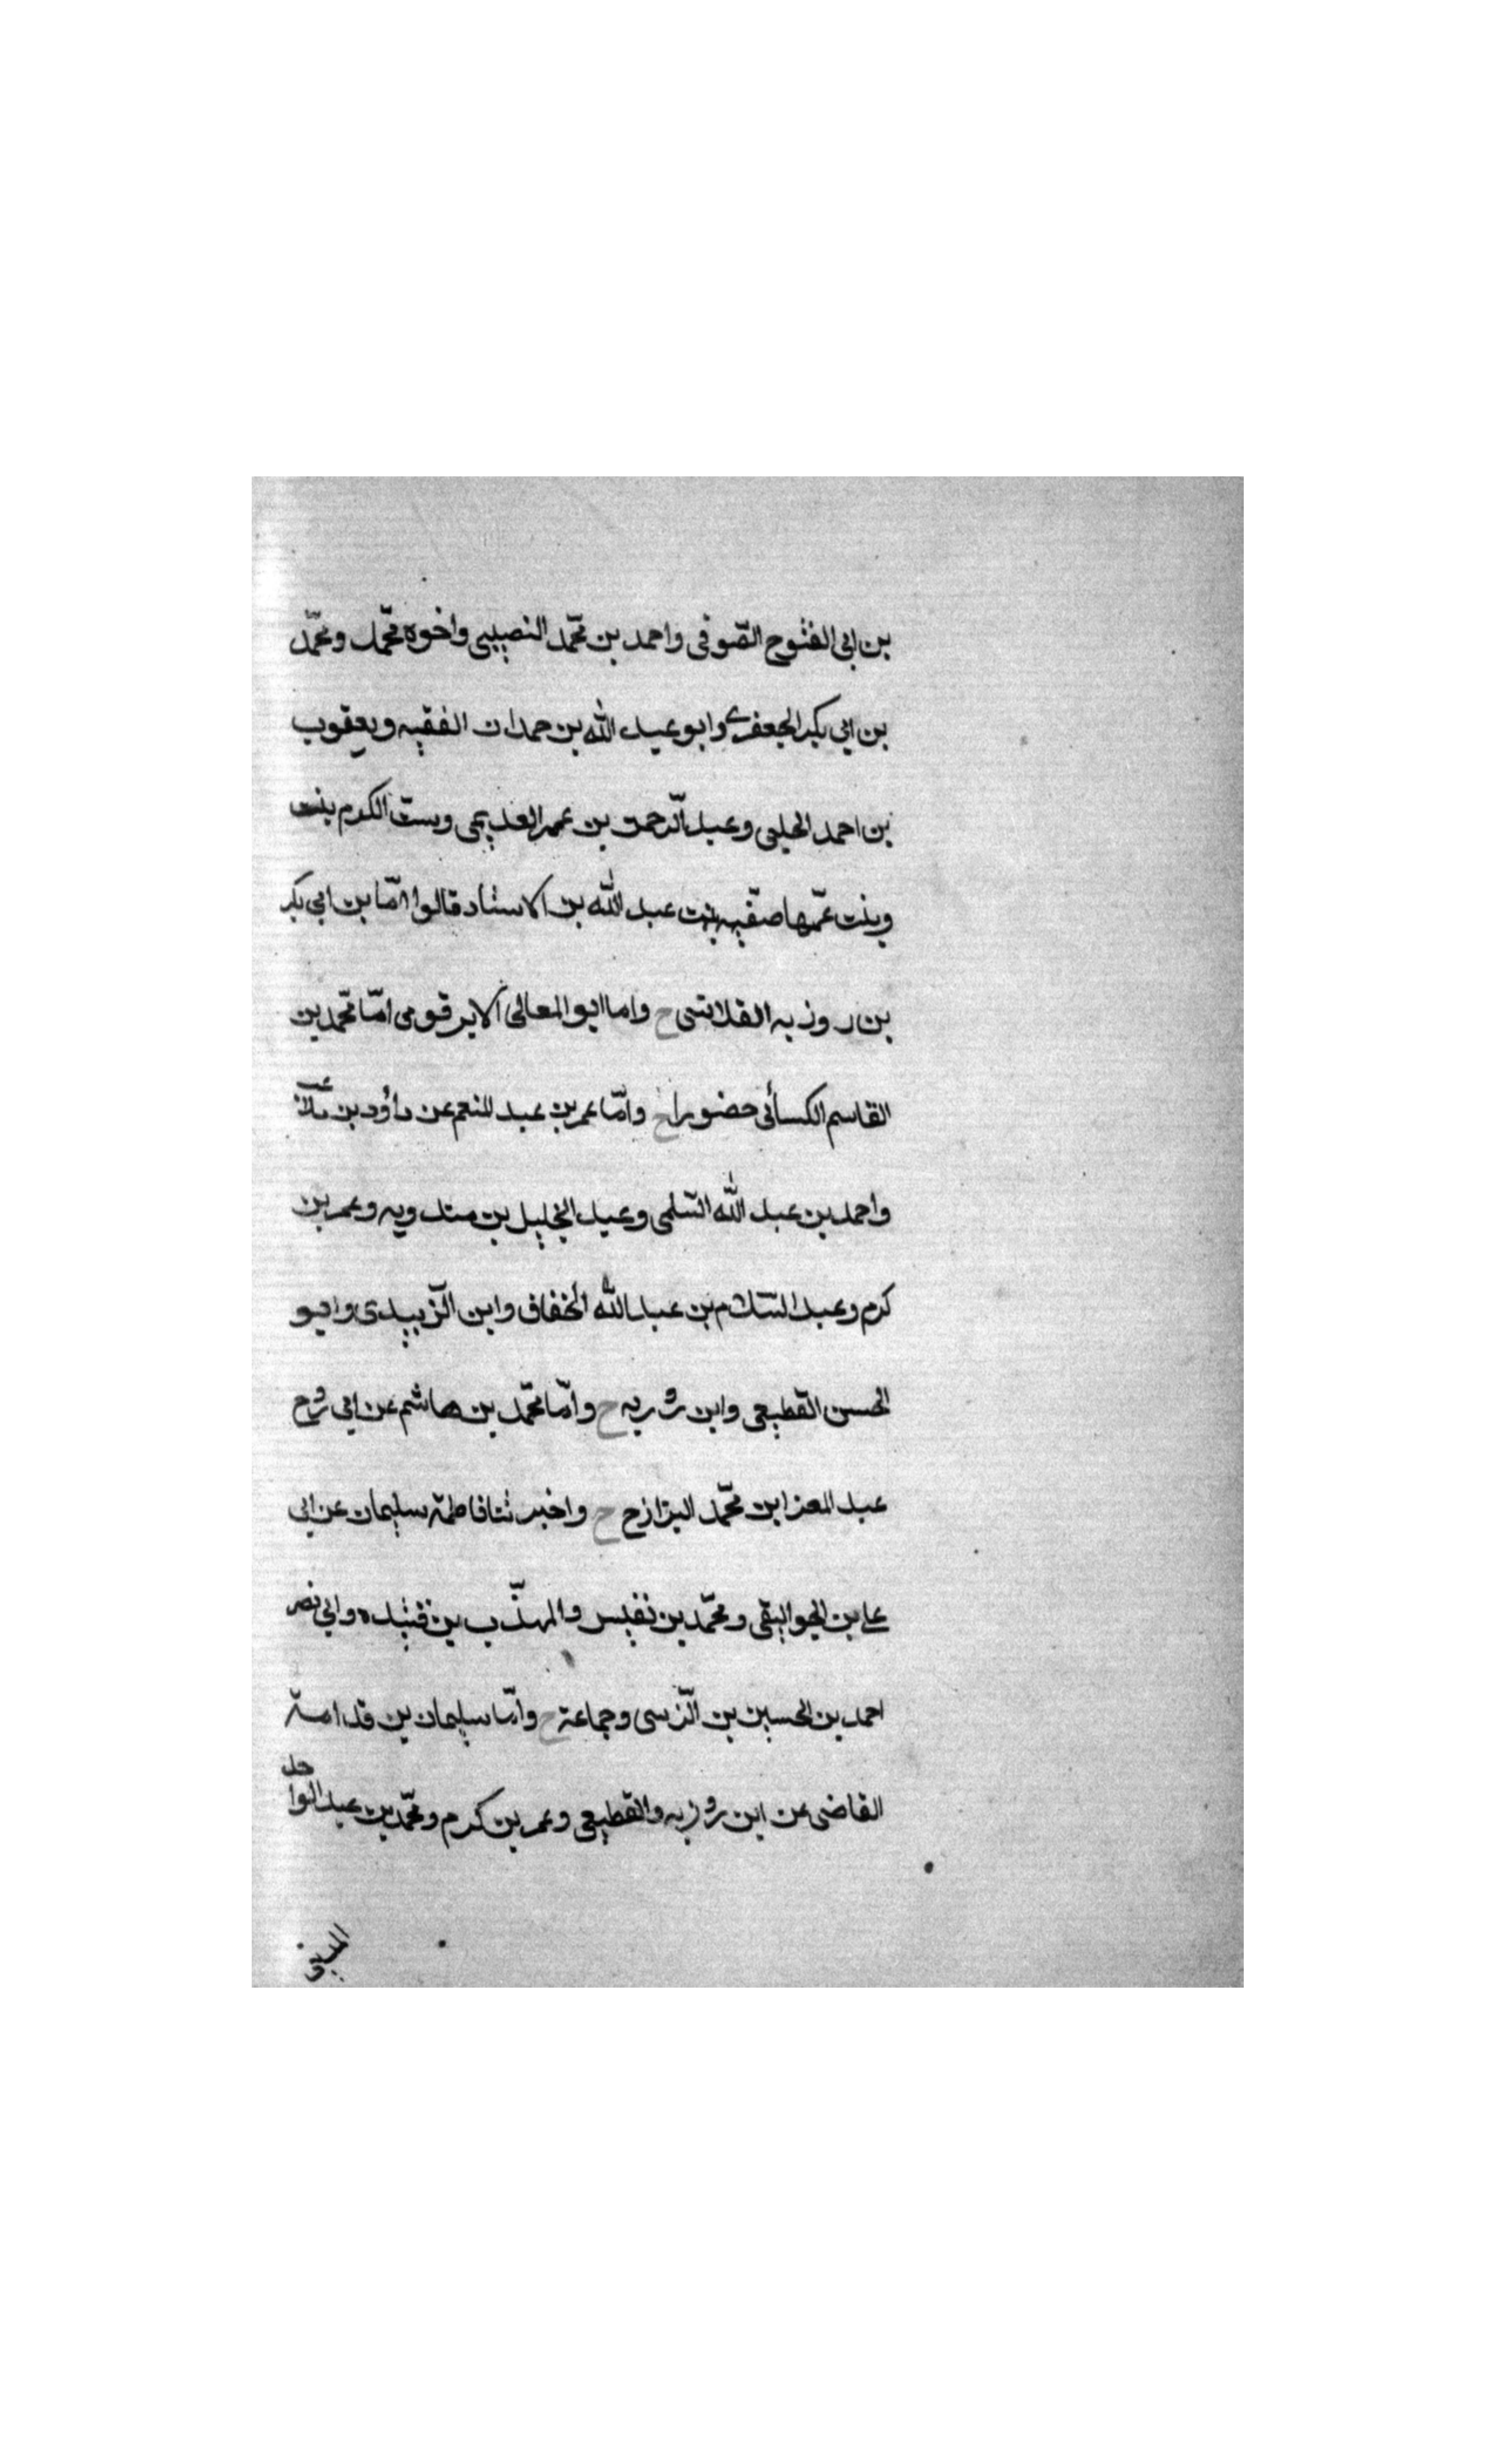 بن ابى الفتوح الصّوفى واحمد بن محمّد النصيبى واخوه محمّد ومحمّد
بن ابى بكر الجعفرى وابو عبد الله بن حمدان الفقيه ويعقوب
بن احمد الحلبى وعبد الرّحمن بن عمر العديمى وستّ الكرم بنت
وبنت عمّها صفّيه بنت عبد الله بن الاستاد قالوا امّا بن ابى بكر
بن روزبه القلانسى ح واما ابو المعالى الابرقومى امّا محمّد بن
القاسم الكسائى حضورا ح وامّا عمر بن عبد المنعم عن داؤد بن
واحمد بن عبد الله السّلمى وعبد الخليل بن مندويه وعمر بن
كرم وعبد السّلام بن عبد الله الخفاف وابن الزّبيدى وابو
الحسن القطيعى وابن روزبه ح وامّا محمّد بن هاشم عن ابى روح
عبد المعز ابن محمّد البزازح ح واخبرتنا فاطمة سليمان عن ابى
على بن الجواليقى ومحمّد بن نفيس والمهذّب بن قنيده وابى نصر
احمد بن الحسين بن النّرسى وجماعة ح وامّا سليمان بن قدامة
القاضى عن ابن روزبه والقطيعى وعمر بن كرم ومحمّد بن عبد الواحد